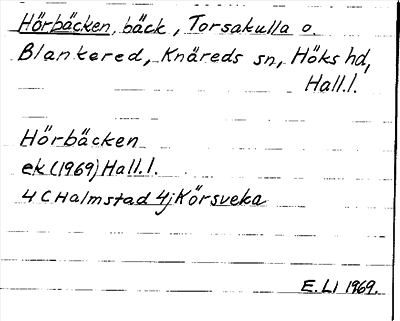 Hörbäcken, bäck, Torsakulla o.
Blankered, Knäreds sn, Höks hd,
Hall.l.
Hörbäcken
ek(1969)Hall.l.
4 C Halmstad 4j Körsveka
E.LI 1969.